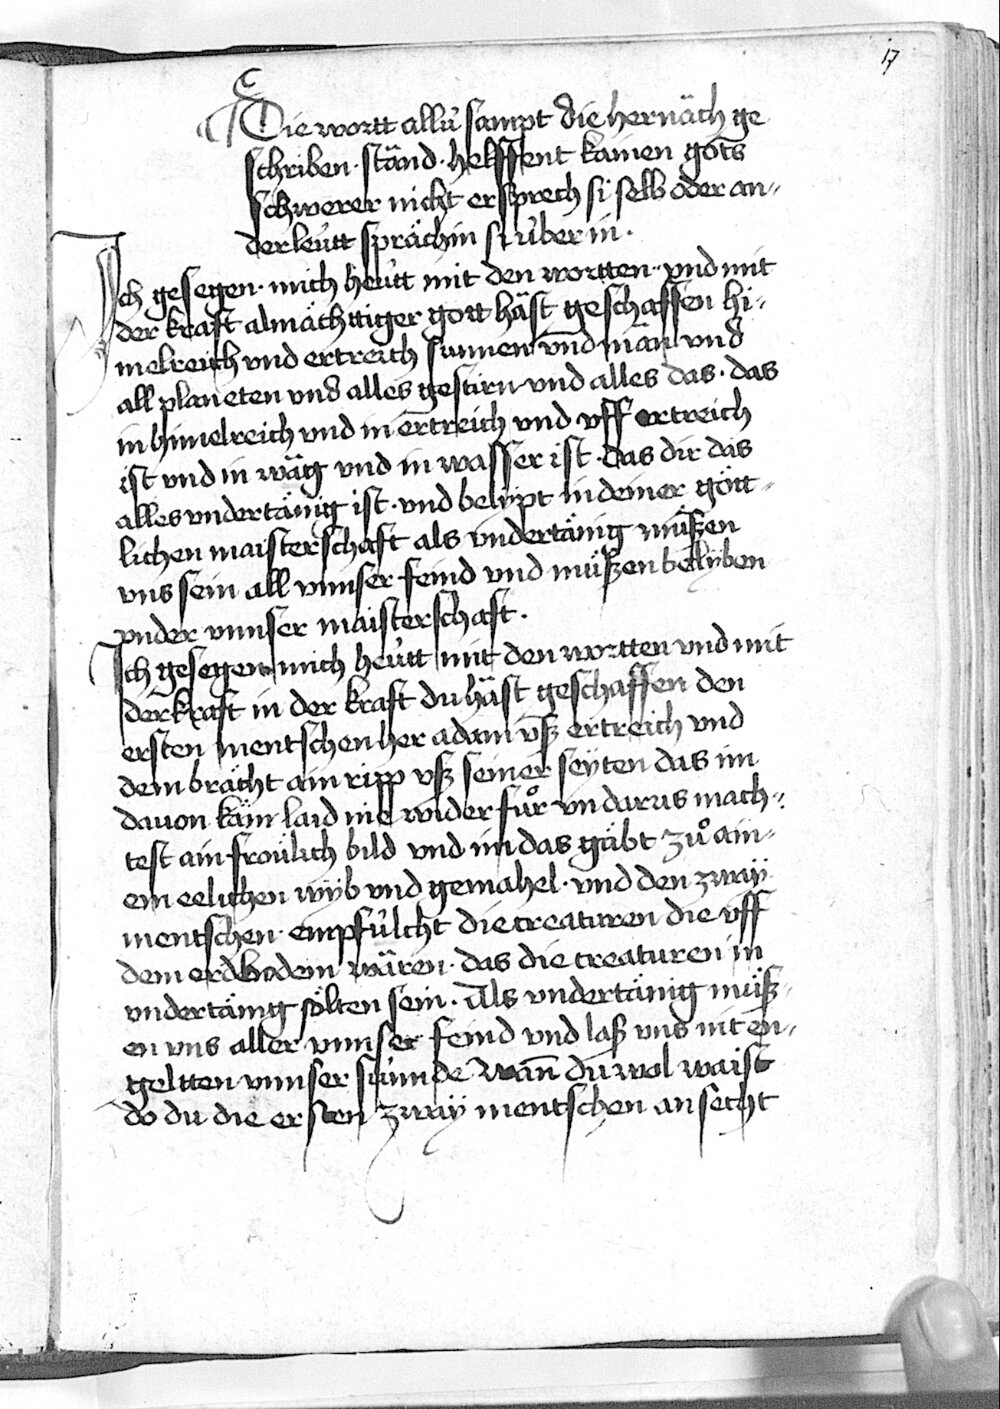 17
Die wortt allü sampt die hernäch ge
schriben · ständ · helffent kainen gots
schwerer nicht er sprech si selb oder an-
der leütt sprächin si über in ·
Ich gesegen · mich heütt mit den wortten · vnd mit
der kraft almächttiger gott häst geschaffen hi-
melreich vnd ertreich sunnen vnd män vnd
all planeten vnd alles gestirn vnd alles das · das
in himelreich vnd in ertreich vnd vff ertreich
ist vnd in wäg vnd in wasser ist · das dir das
alles vndertänig ist · vnd belypt in deiner gött-
lichen maisterschaft als vndertänig müßen
vns sein all vnnser feind vnd müßen belyben
vnder vnnser maisterschaft ·
Ich gesegen mich heütt mit den wortten vnd mit
der kraft in der kraft du häst geschaffen den
ersten mentschen her adam vß ertreich vnd
dem brächt ain ripp vß seiner seÿten das im
dauon käin laid nie widerfůr vn darus mach-
test ain froülich bild vnd im das gäbt zů ain-
em eelichen wÿb vnd gemahel · vnd den zwaÿ
mentschen empfülcht die creaturen die vff
dem erdbodem wären · das die creaturen in
vndertänig sölten sein · Als vndertänig müß-
en vns aller vnnser feind vnd laß vns nit en-
geltten vnnser sünnde wann du wol waist
do du die ersten zwaÿ mentschen an secht